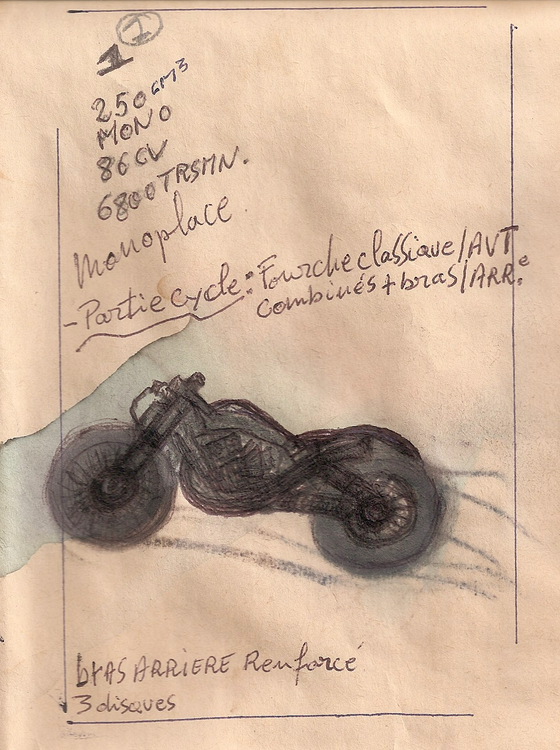 1 1
250 CM3
MONO
86 CV
6800 TRSMN.
Monoplace
- Partie cycle: Fourche classique/AVT
combinés + bras/ARRe.
bras ARRIERE Renforcé
3 disques